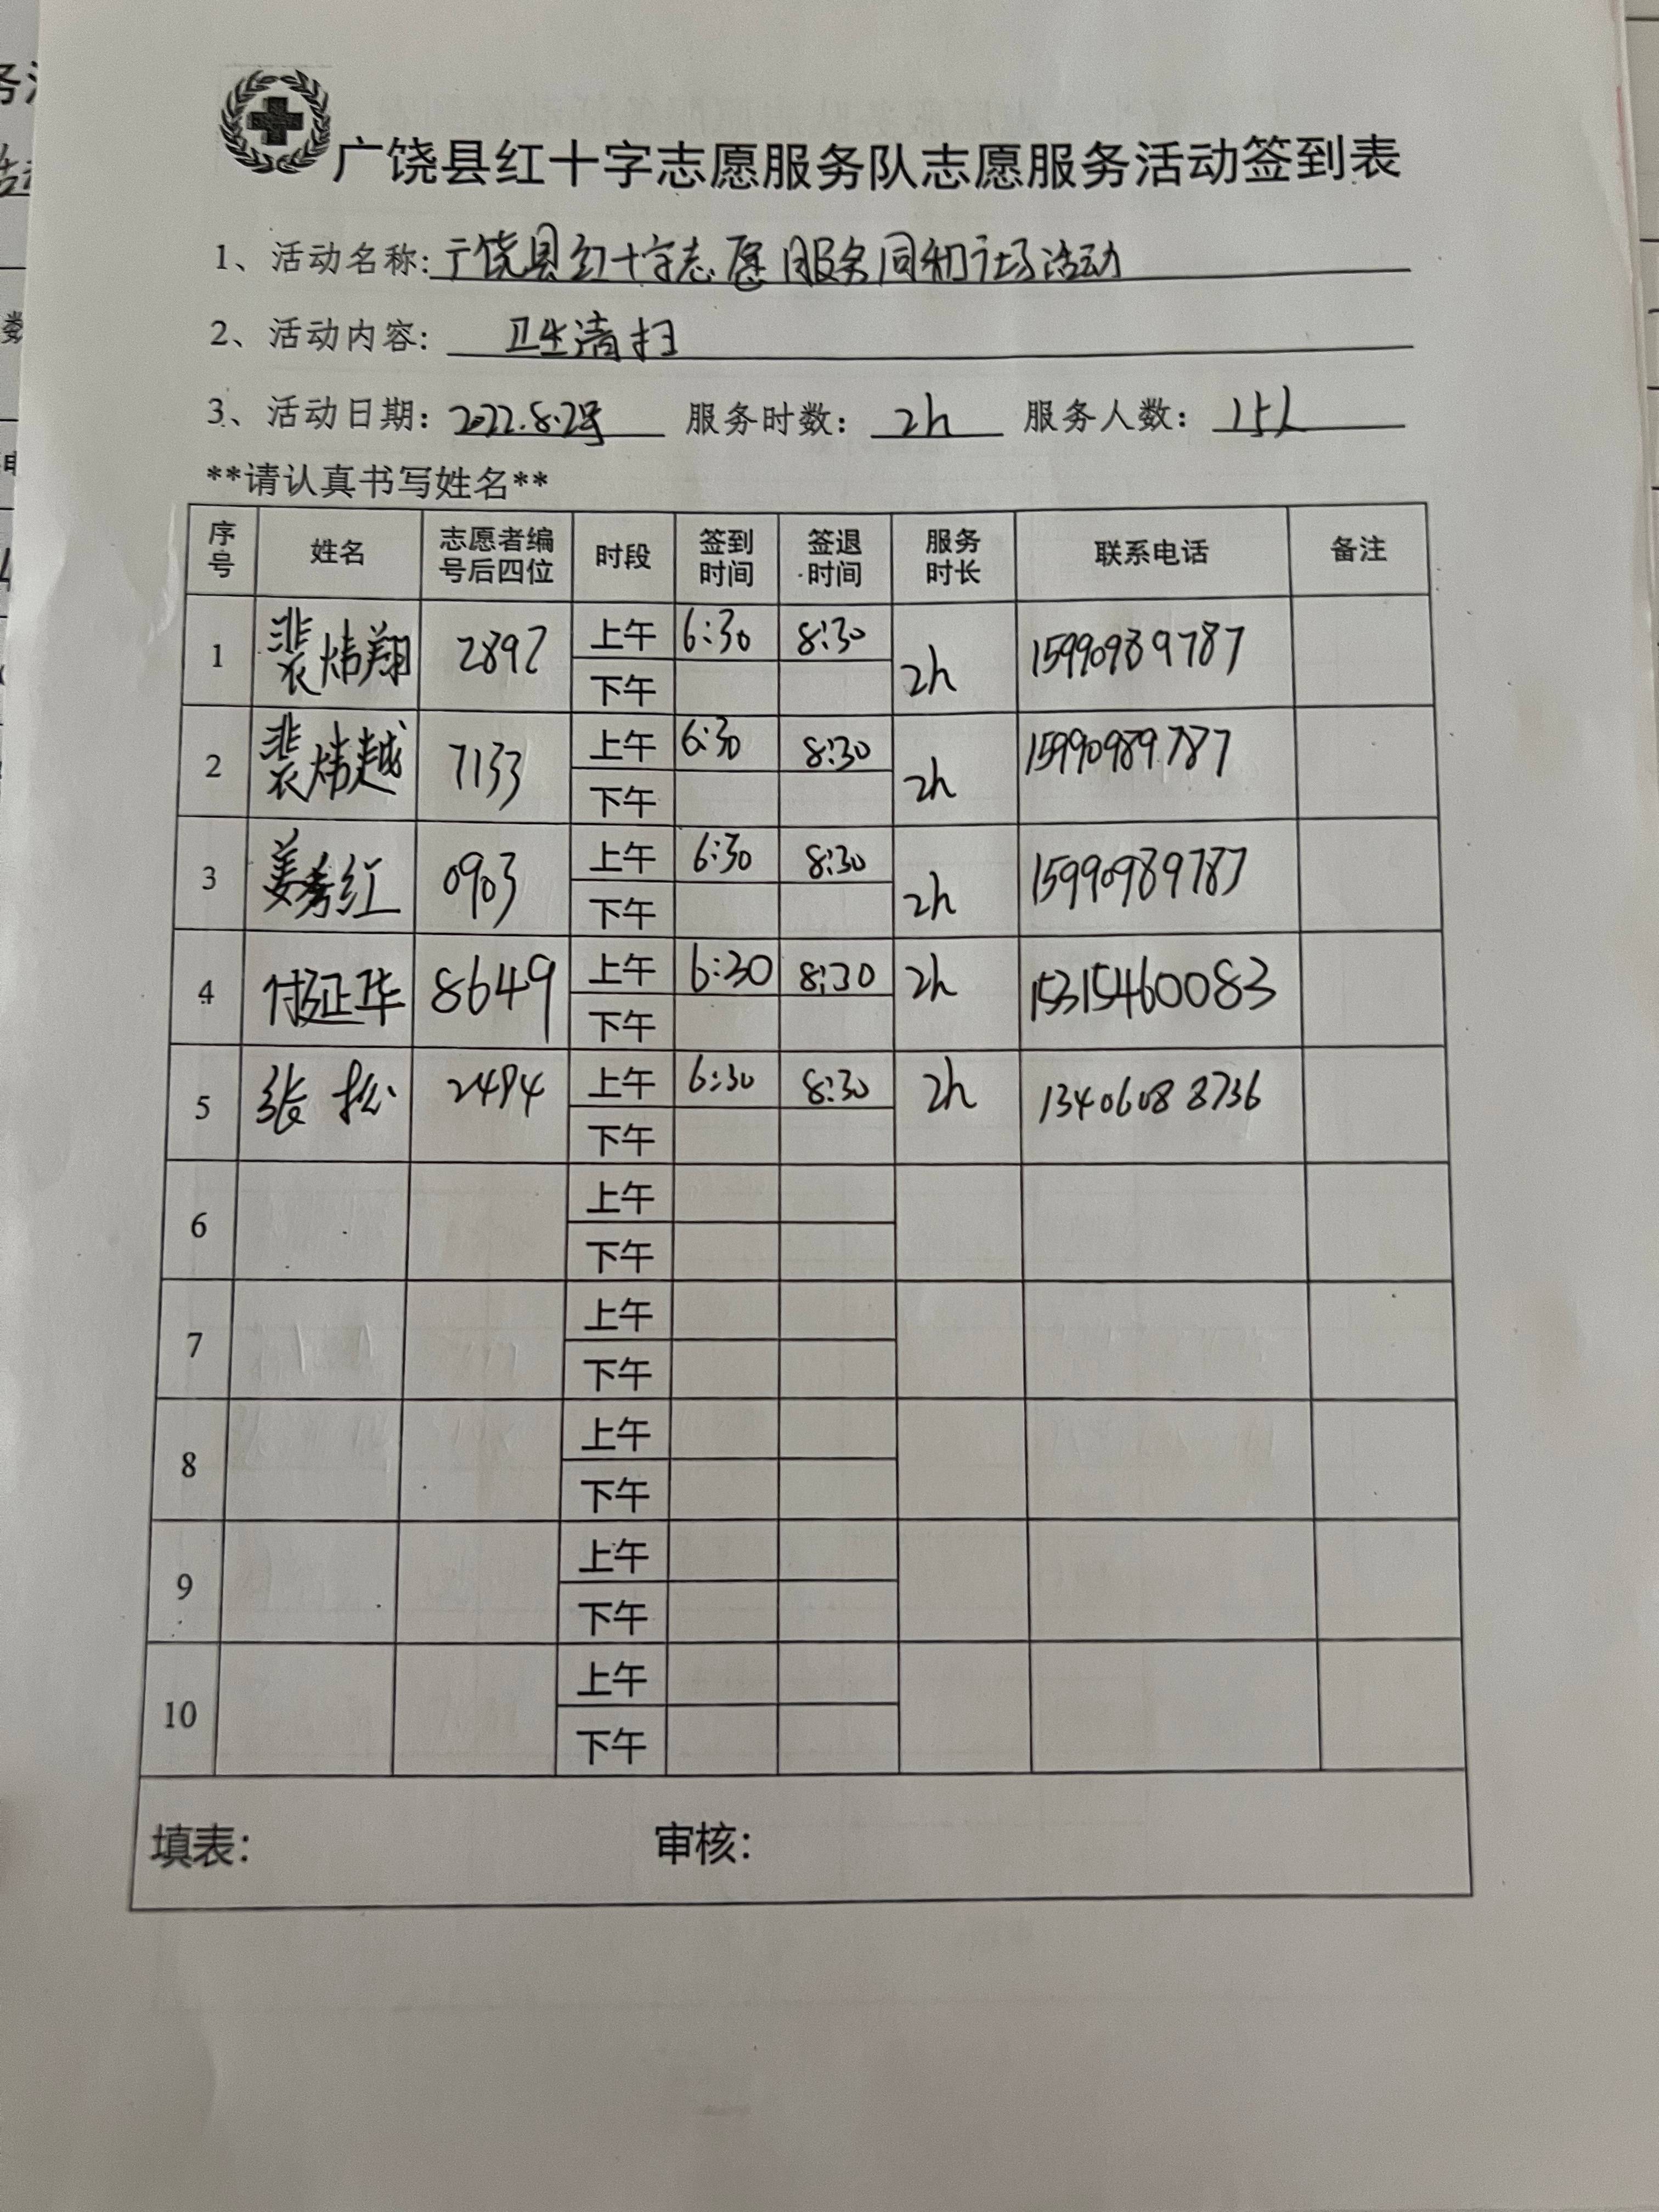 广饶县红十字志愿服务队志愿服务活动签到表
1、活动名称:广饶县红十字志愿服务同和市场活动
2、活动内容: 卫生清扫
3、活动日期: 2022.8.2号 服务时数: 2h 服务人数: 15人
**请认真书写姓名**
序号 姓名 志愿者编号后四位 时段 签到时间 签退时间 服务时长 联系电话 备注
1 裴炜翔 2897 上午 6:30 8:30 2h 15990989787
下午
2 裴炜越 7133 上午 6:30 8:30 2h 15990989787
下午
3 姜秀红 0903 上午 6:30 8:30 2h 15990989787
下午
4 付延华 8649 上午 6:30 8:30 2h 15315460083
下午
5 张松 2494 上午 6:30 8:30 2h 13406088736
下午
6 上午
下午
7 上午
下午
8 上午
下午
9 上午
下午
10 上午
下午
填表: 审核: